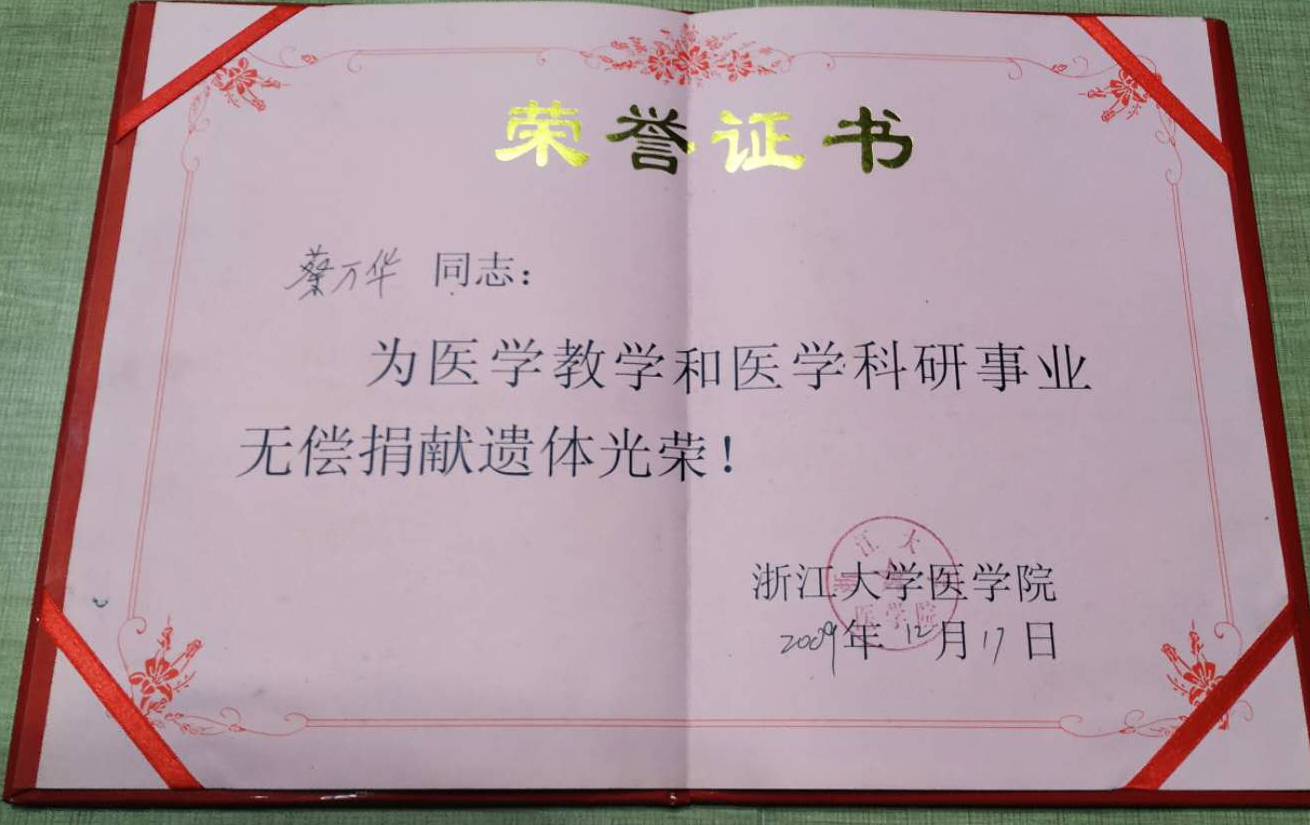 荣誉证书
蔡万华 同志：
为医学教学和医学科研事业
无偿捐献遗体光荣！
浙江大学医学院
2009年12月17日
江大
医学院